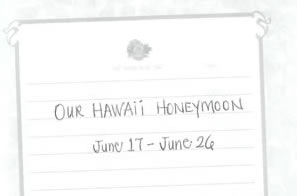 OUR HAWAii HONEYMOON
June 17 - June 26